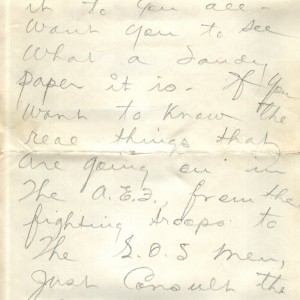 it to you all -
Want you to see
What a dandy
paper it is - If you
want to know the
real things that
are going on in
The A.E.F., from the
fighting troops to
The S.O.S men,
Just Consult the